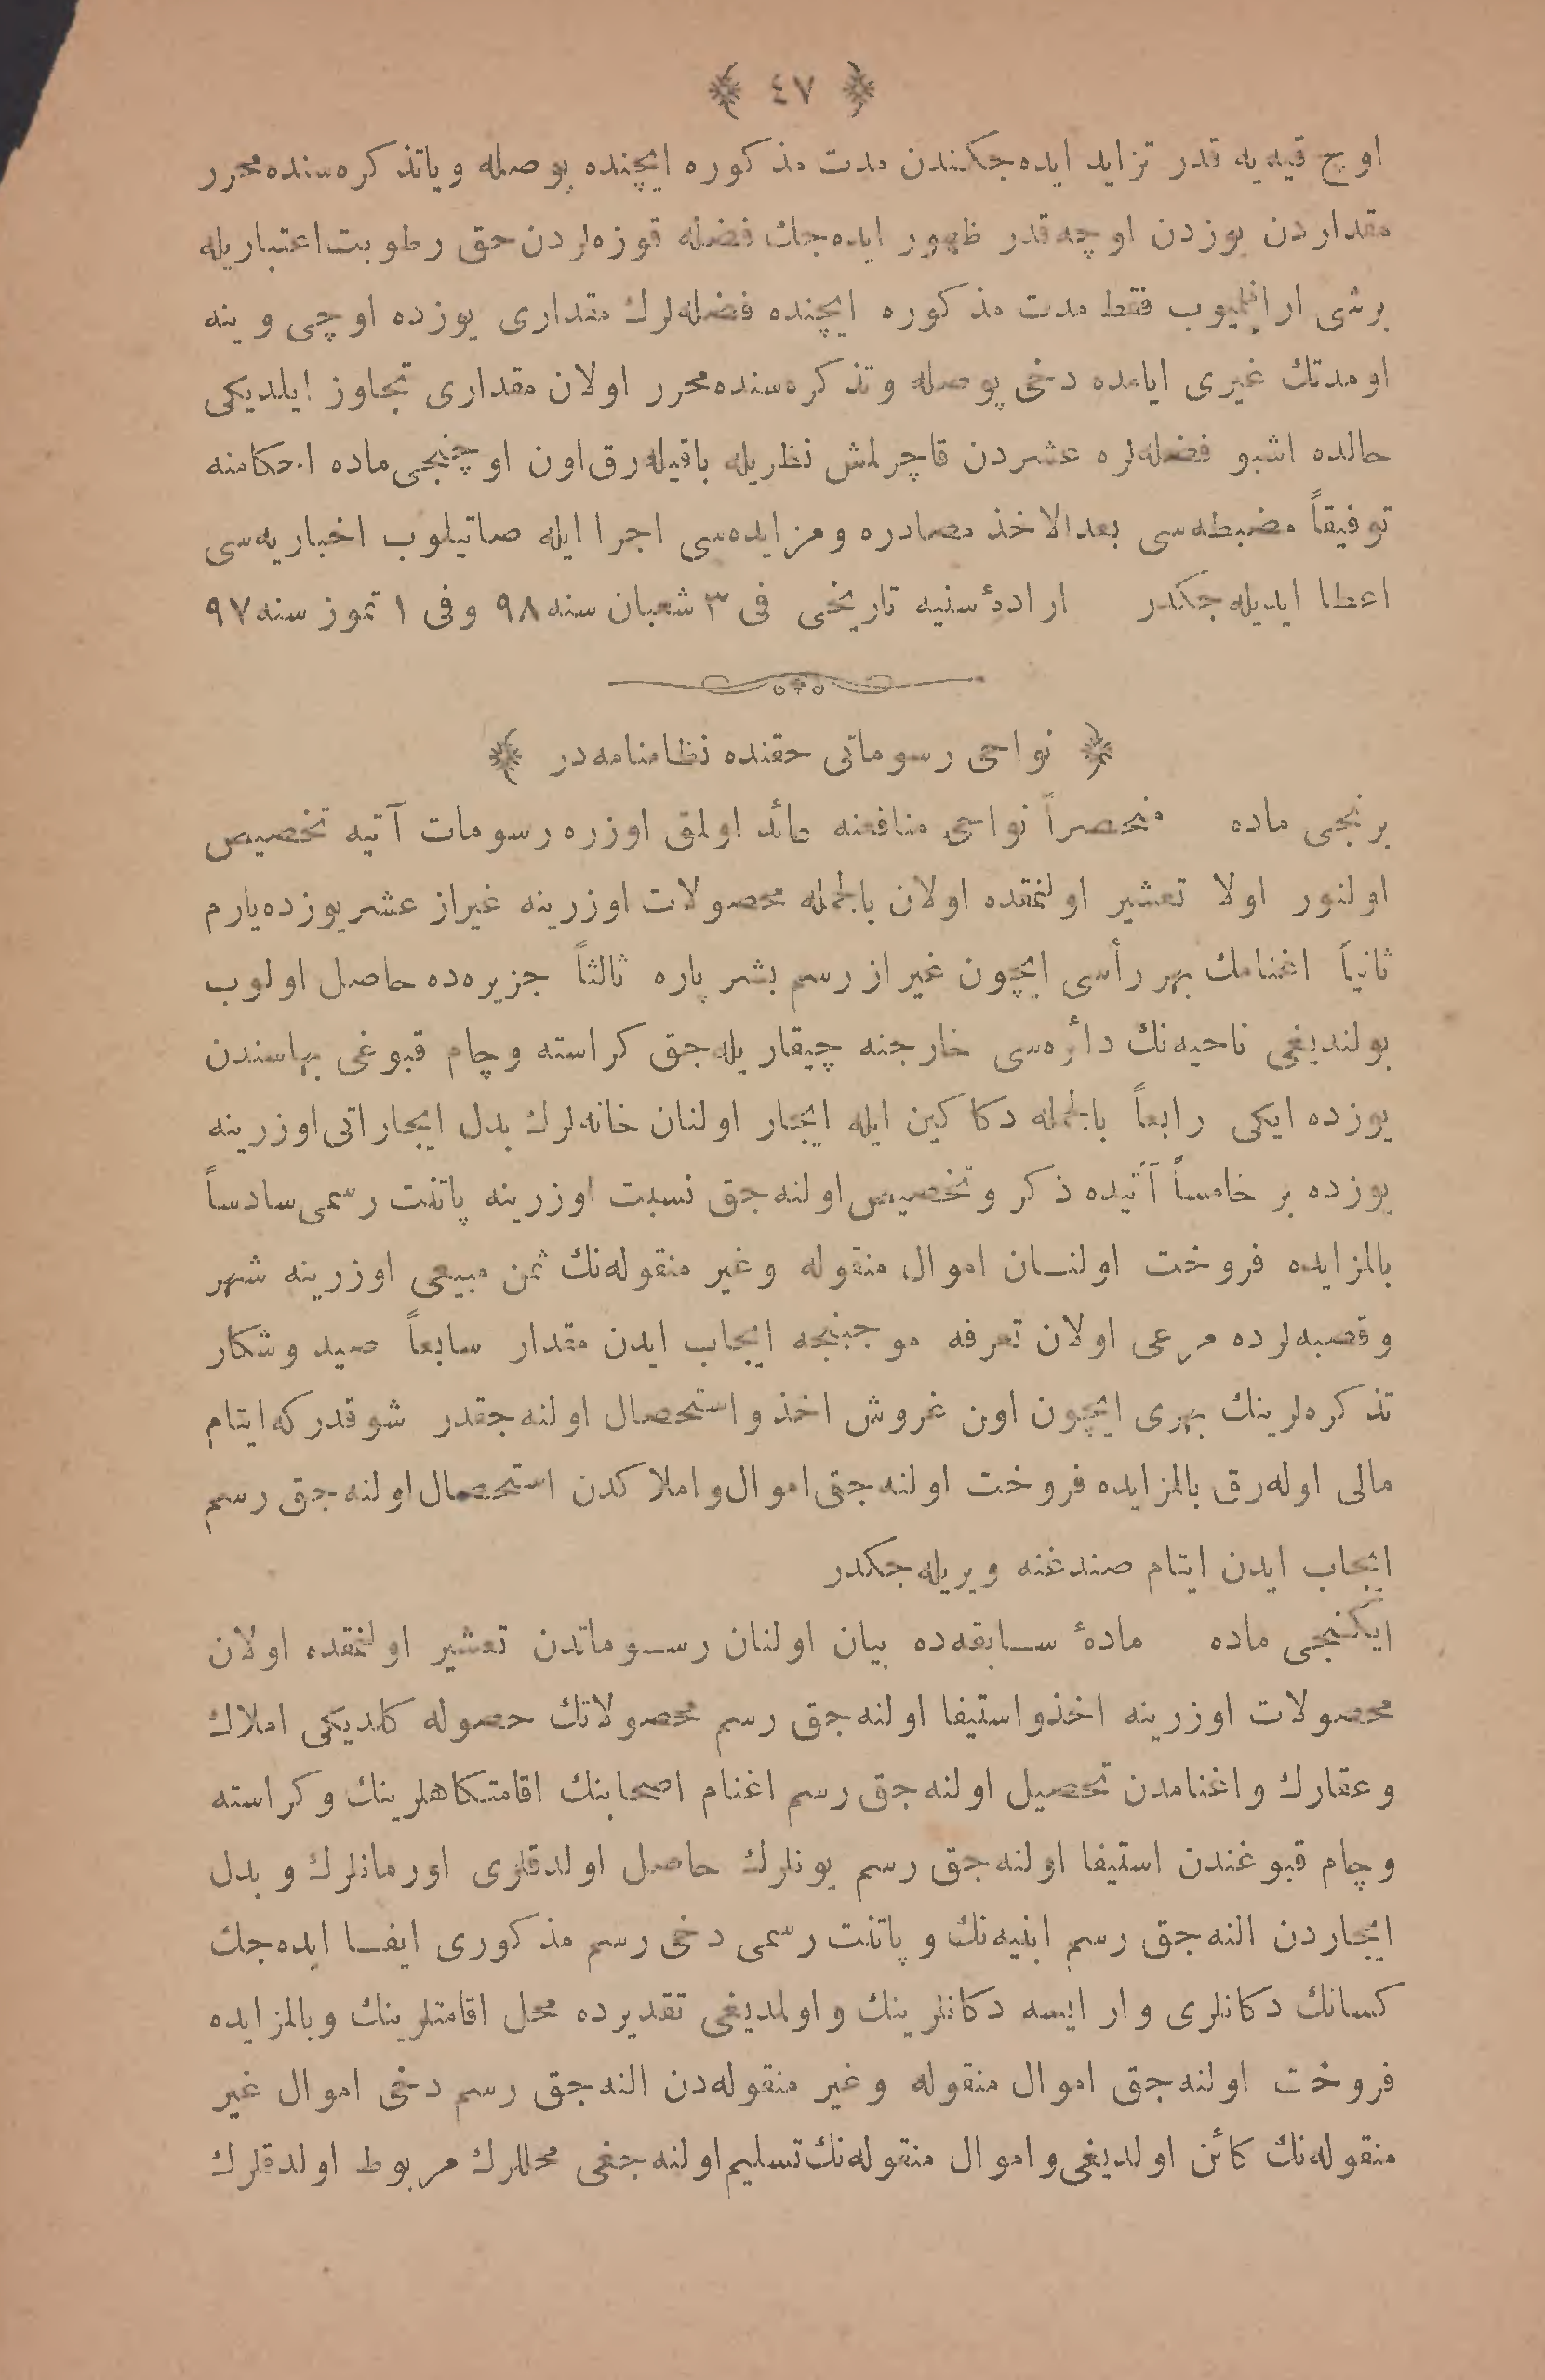 ﴿ ٤٧ ﴾
اوچ قیه‌یه قدر تزاید ایده‌جکندن مدت مذکوره ایچنده پوصله ویاتذکره‌سنده‌محرر
مقداردن یوزدن اوچه‌قدر ظهور ایده‌جك فضله قوزه‌لردن حق رطوبت‌اعتباریله
برشی ارانلمیوب فقط مدت مذکوره ایچنده فضله‌لرك مقداری یوزده اوچی وینه
اومدتك غیری ایامده دخی پوصله وتذکره‌سنده‌محرر اولان مقداری تجاوز ایلدیکی
حالده اشبو فضله‌لره عشردن قاچرلمش نظریله باقیله‌رق‌اون اوچنجی‌ماده احکامنه
توفیقاً مضبطه‌سی بعدالاخذ مصادره ومزایده‌سی اجرا ایله صاتیلوب اخباریه‌سی
اعطا ایدیله‌جکدر ارادهٔ سنیه تاریخی فی ٣ شعبان سنه ٩٨ وفی ١ تموز سنه ٩٧
﴿ نواحی رسوماتی حقنده نظامنامه‌در ﴾
برنجی ماده منحصراً نواحی منافعنه عائد اولمق اوزره رسومات آتیه تخصیص
اولنور اولا تعشیر اولنمقده اولان بالجمله محصولات اوزرینه غیراز عشریوزده‌یارم
ثانیاً اغنامك بهر رأسی ایچون غیر از رسم بشر پاره ثالثاً جزیره‌ده حاصل اولوب
بولندیغی ناحیه‌نك دأره‌سی خارجنه چیقاریله‌جق کراسته وچام قبوغی بهاسندن
یوزده ایکی رابعاً بالجمله دکاکین ایله ایجار اولنان خانه‌لرك بدل ایجاراتی اوزرینه
یوزده بر خامساً آتیده ذکر وتخصیص اولنه‌جق نسبت اوزرینه پاتنت رسمی سادساً
بالمزایده فروخت اولنان اموال منقوله وغیر منقوله‌نك ثمن مبیعی اوزرینه شهر
وقصبه‌لرده مرعی اولان تعرفه موجبنجه ایجاب ایدن مقدار سابعاً صید وشکار
تذکره‌لرینك بهری ایچون اون غروش اخذ واستحصال اولنه‌جقدر شوقدرکه ایتام
مالی اوله‌رق بالمزایده فروخت اولنه‌جق اموال واملاکدن استحصال اولنه‌جق رسم
ایجاب ایدن ایتام صندغنه ویریله‌جکدر
ایکنجی ماده مادهٔ سابقه‌ده بیان اولنان رسوماتدن تعشیر اولنمقده اولان
محصولات اوزرینه اخذواستیفا اولنه‌جق رسم محصولاتك حصوله کلدیکی املاك
وعقارك واغنامدن تحصیل اولنه‌جق رسم اغنام اصحابنك اقامتکاهلرینك وکراسته
وچام قبوغندن استیفا اولنه‌جق رسم بونلرك حاصل اولدقلری اورمانلرك وبدل
ایجاردن النه‌جق رسم ابنیه‌نك وپاتنت رسمی دخی رسم مذکوری ایفا ایده‌جك
کسانك دکانلری وار ایسه دکانلرینك واولمدیغی تقدیرده محل اقامتلرینك وبالمزایده
فروخت اولنه‌جق اموال منقوله وغیر منقوله‌دن النه‌جق رسم دخی اموال غیر
منقوله‌نك کائن اولدیغی واموال منقوله‌نك تسلیم اولنه‌جغی محللرك مربوط اولدقلرك